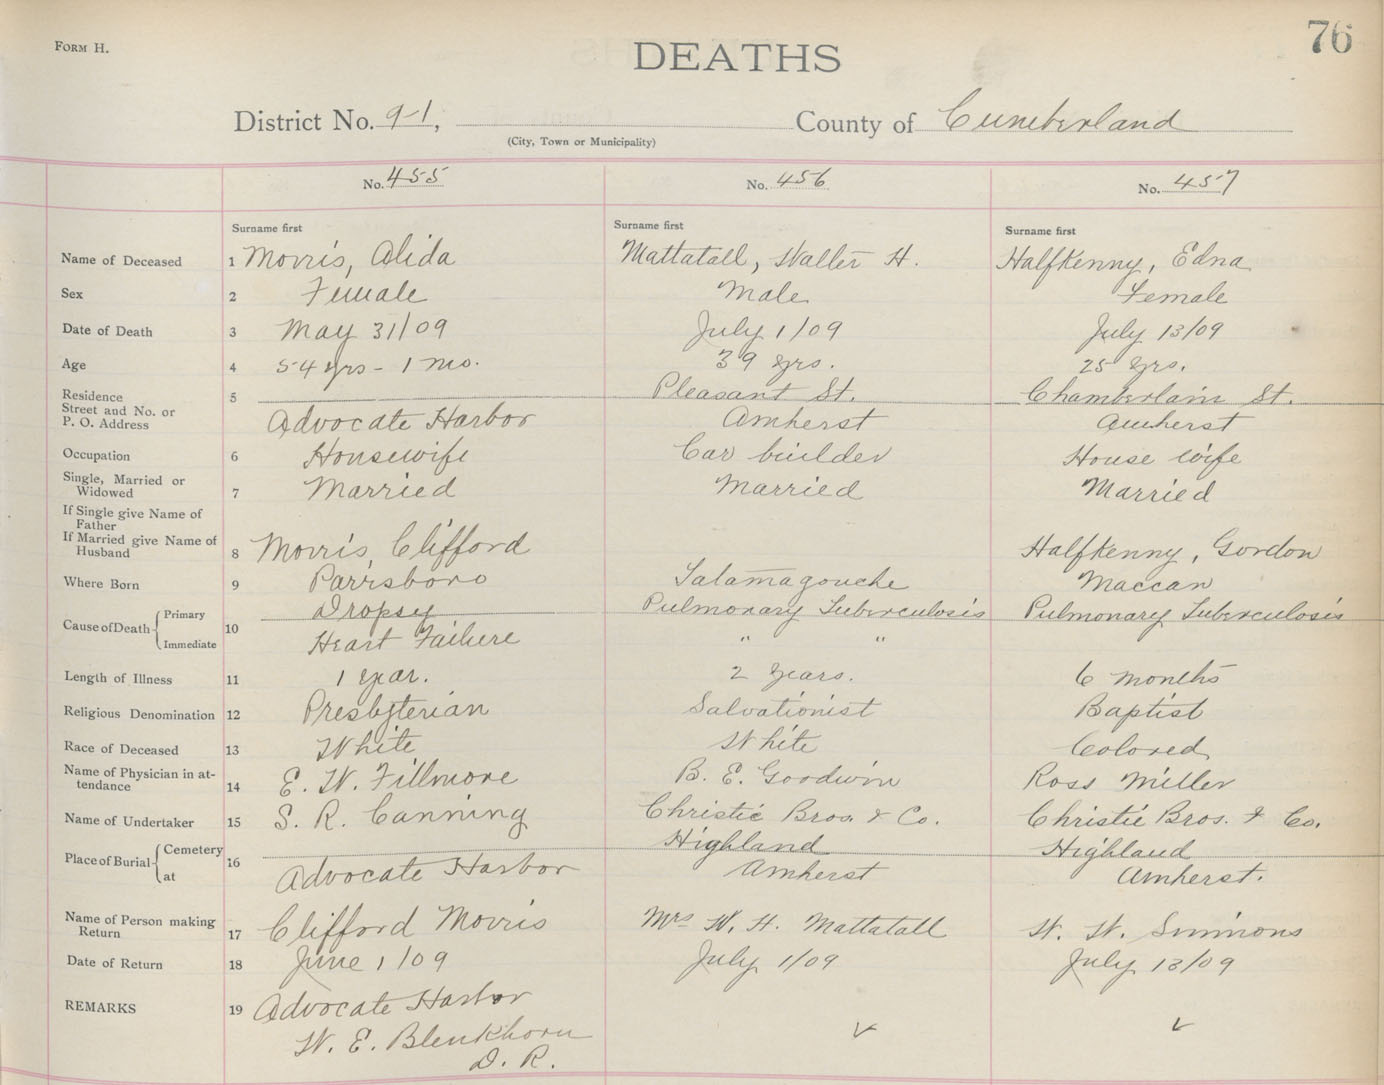 76
FORM H.
DEATHS
District No. 9-1, County of Cumberland
(City, Town or Municipality)
No. 455 No. 456 No. 457
Surname first Surname first Surname first
Name of Deceased 1 Morris, Alida Mattatall, Walter H. Halfkenny, Edna
Sex 2 Female Male Female
Date of Death 3 May 31/09 July 1/09 July 13/09
Age 4 54 yrs - 1 mo. 39 yrs. 25 yrs.
Residence 5 Pleasant St. Chamberlain St.
Street and No. or
P. O. Address Advocate Harbor Amherst Amherst
Occupation 6 Housewife Car builder House wife
Single, Married or
Widowed 7 Married Married Married
If Single give Name of
Father
If Married give Name of
Husband 8 Morris, Clifford Halfkenny, Gordon
Where Born 9 Parrsboro Tatamagouche Maccan
Cause of Death Primary 10 Dropsy Pulmonary Tuberculosis Pulmonary Tuberculosis
Immediate Heart Failure " "
Length of Illness 11 1 year. 2 years. 6 months
Religious Denomination 12 Presbyterian Salvationist Baptist
Race of Deceased 13 White White Colored
Name of Physician in at-
tendance 14 E. W. Fillmore B. E. Goodwin Ross Miller
Name of Undertaker 15 S. R. Canning Christie Bros. & Co. Christie Bros. & Co.
Place of Burial Cemetery 16 Highland Highland
at Advocate Harbor Amherst Amherst.
Name of Person making
Return 17 Clifford Morris Mrs W. H. Mattatall W. W. Simmons
Date of Return 18 June 1/09 July 1/09 July 13/09
REMARKS 19 Advocate Harbor
W. E. Blenkhorn
D. R.